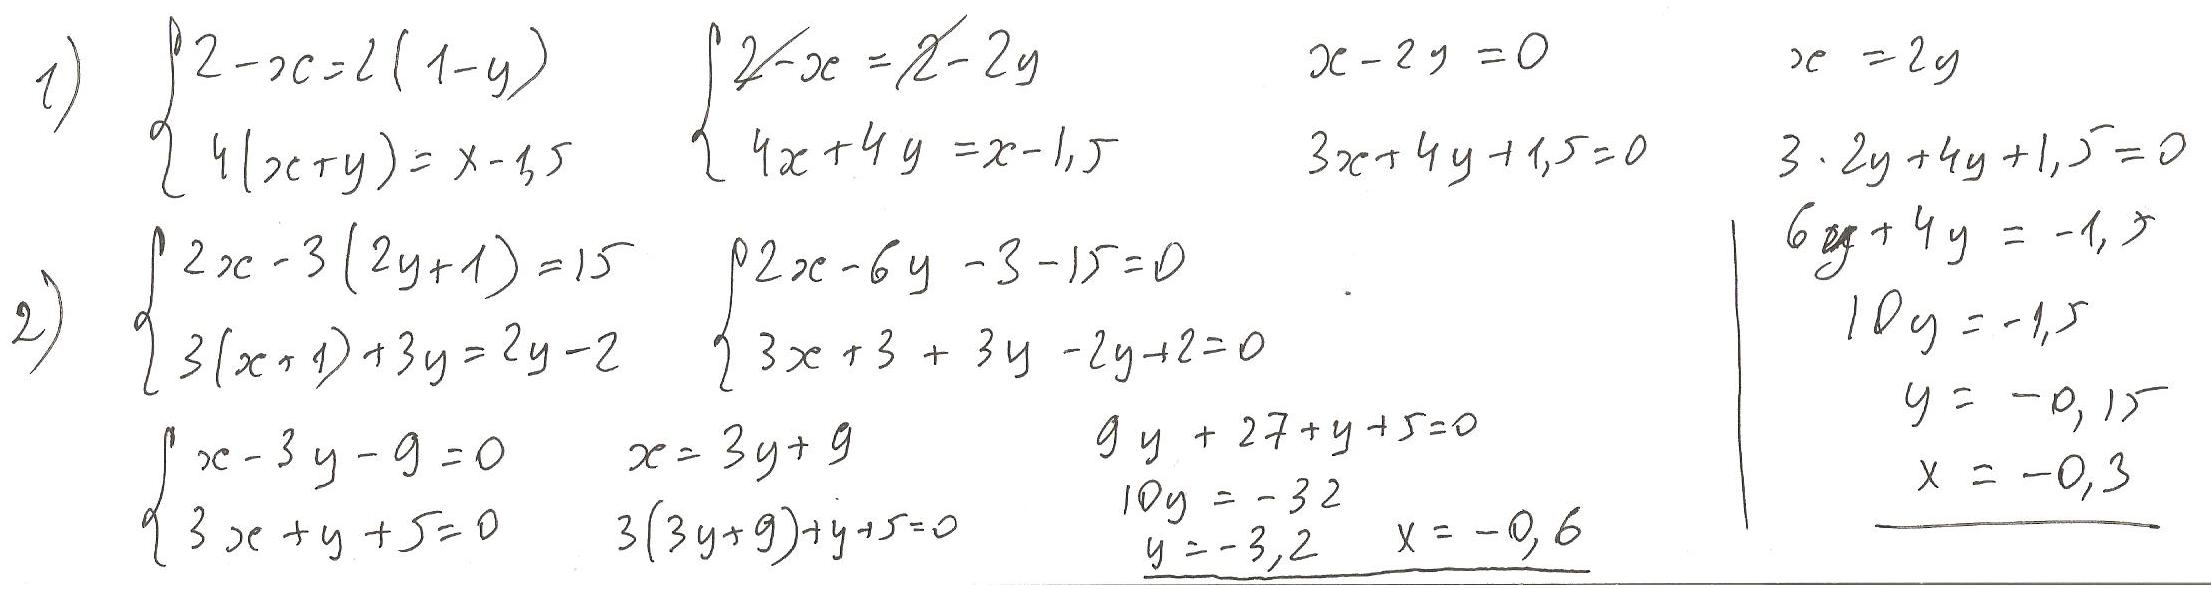 1) { 2-x=2(1-y) { 2-x=2-2y x-2y=0 x=2y
4(x+y)=x-1,5 4x+4y=x-1,5 3x+4y+1,5=0 3·2y+4y+1,5=0
6y+4y=-1,5
10y=-1,5
y=-0,15
x=-0,3
2) { 2x-3(2y+1)=15 { 2x-6y-3-15=0
3(x+1)+3y=2y-2 3x+3+3y-2y+2=0
{ x-3y-9=0 x=3y+9 9y+27+y+5=0
3x+y+5=0 3(3y+9)+y+5=0 10y=-32
y=-3,2 x=-0,6